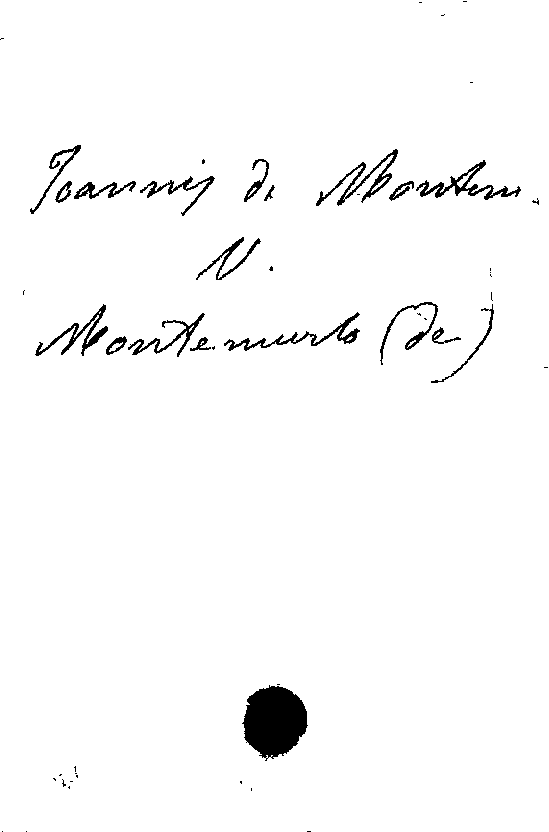 Joannis de Montem.
V.
Montemurlo (de)